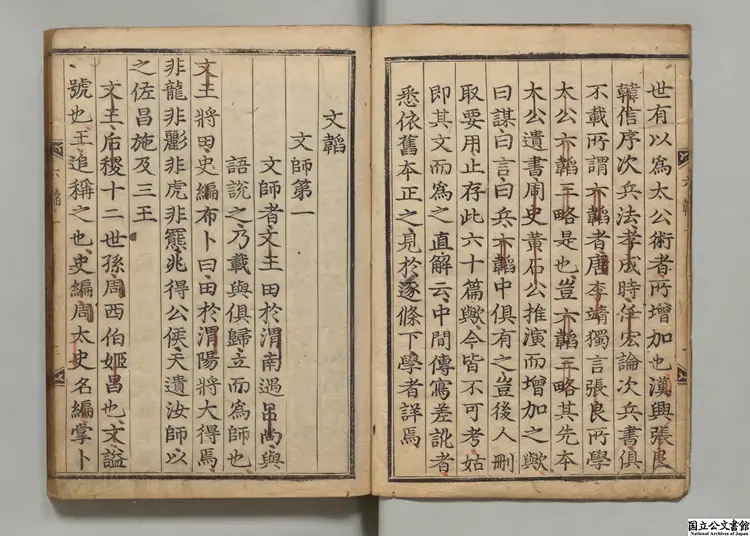 世有以爲太公術者所增加也漢興張良
韓信序次兵法孝成時任宏論次兵書俱
不載所謂六韜者唐李靖獨言張良所學
太公六韜三略是也豈六韜三略其先本
太公遺書周史黃石公推演而增加之歟
曰謀曰言曰兵六韜中俱有之豈後人刪
取要用止存此六十篇歟今皆不可考姑
即其文而爲之直解云中間傳寫差訛者
悉依舊本正之見於逐條下學者詳焉
六韜一
文韜
文師第一
文師者文王田於渭南遇呂尚與
語說之乃載與俱歸立而爲師也
文王將田史編布卜曰田於渭陽將大得焉
非龍非彲非虎非羆兆得公侯天遺汝師以
之佐昌施及三王
文王后稷十二世孫周西伯姬昌也文謚
號也王追稱之也史編周太史名編掌卜
六韜一
国立公文書館
National Archives of Japan